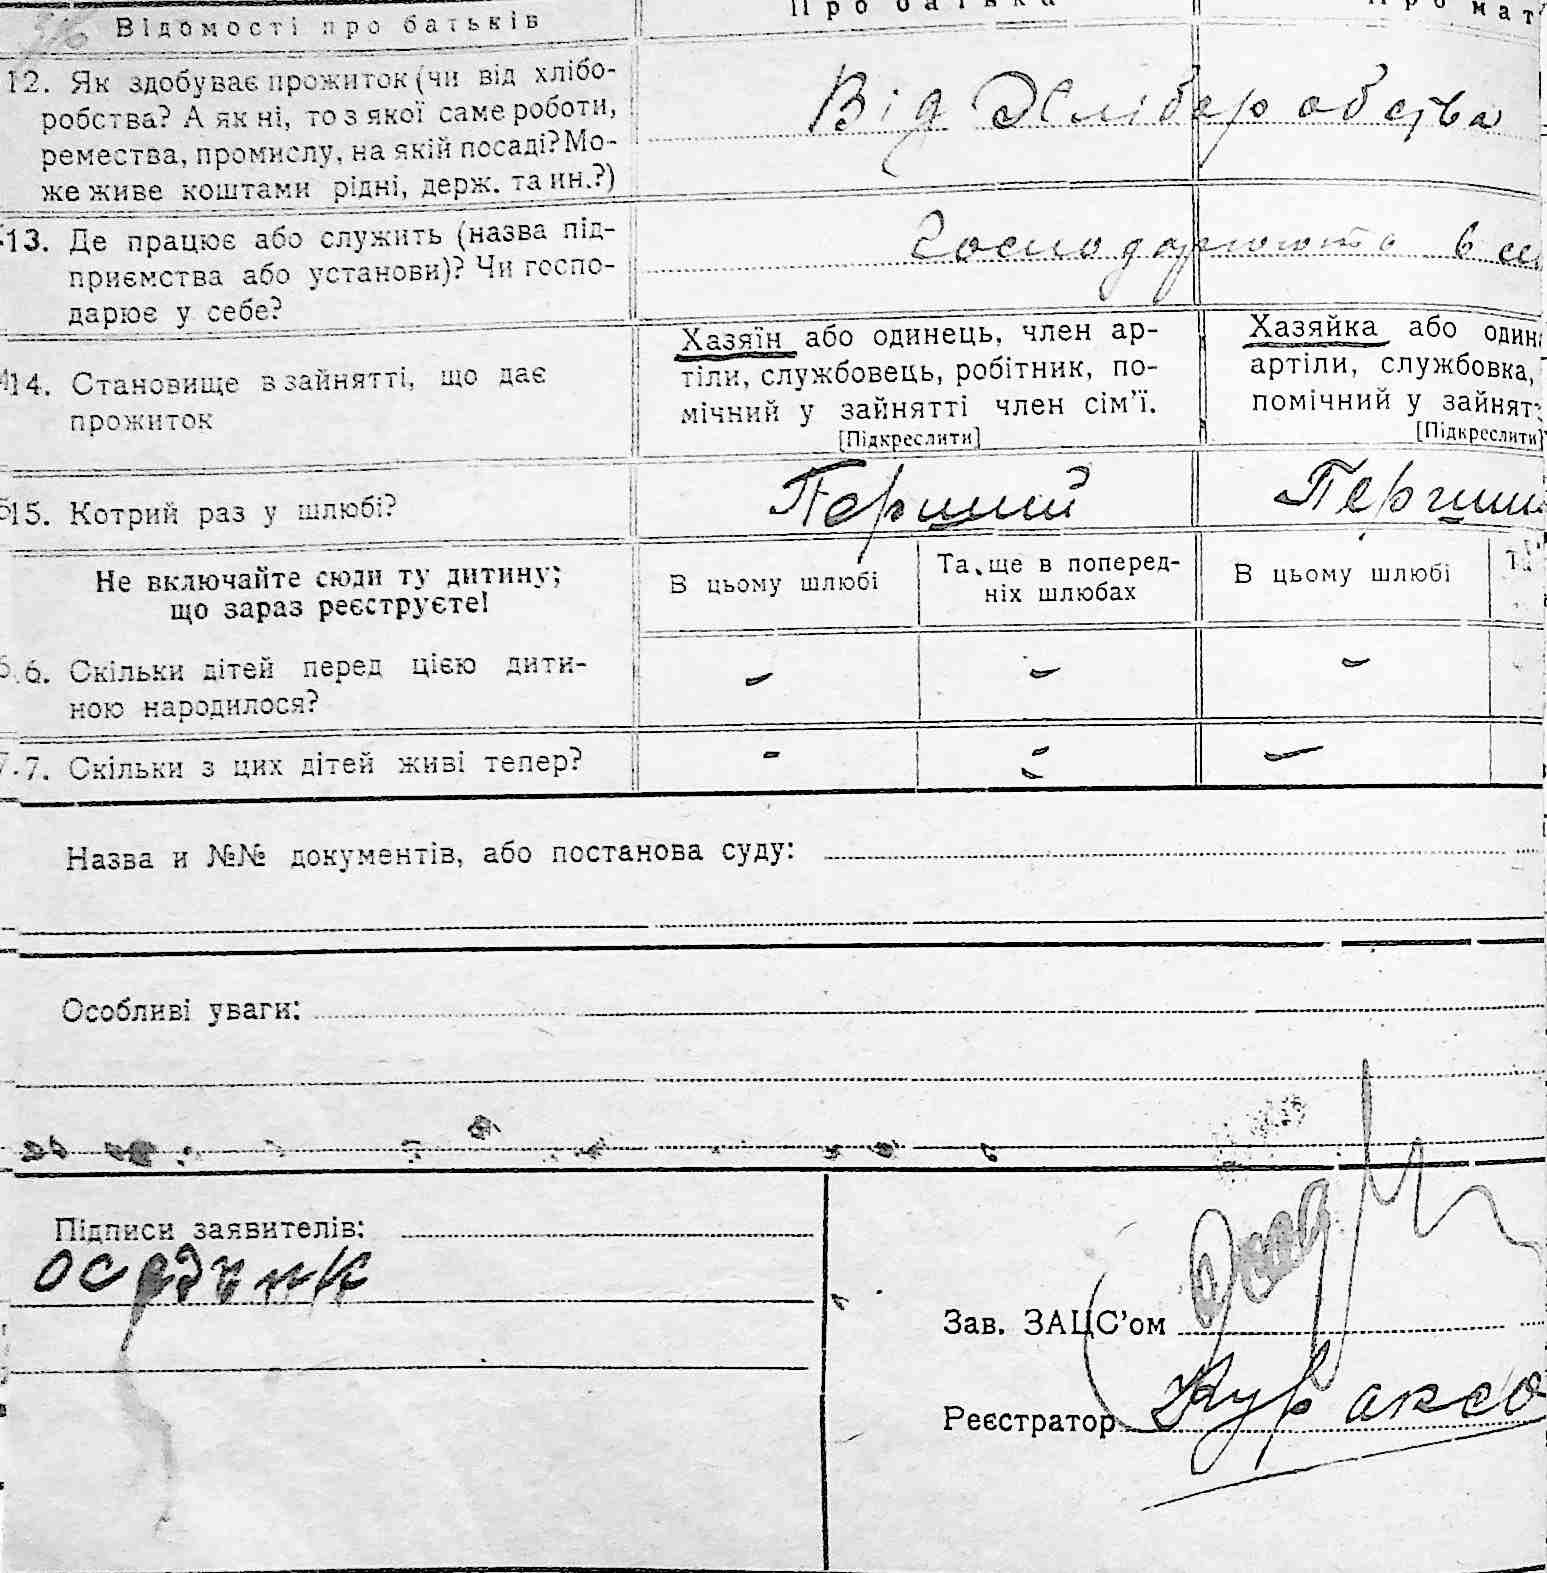 Відомості про батьків
Про батька
Про мат
12. Як здобуває прожиток (чи від хлібо-
робства? А як ні, то з якої саме роботи,
ремества, промислу, на якій посаді? Мо-
же живе коштами рідні, держ. та ин.?)
Від Хліберобства
13. Де працює або служить (назва під-
приємства або установи)? Чи госпо-
дарює у себе?
Господарюють в
14. Становище в зайнятті, що дає
прожиток
Хазяїн або одинець, член ар-
тіли, службовець, робітник, по-
мічний у зайнятті член сім'ї.
[Підкреслити]
Хазяйка або один
артіли, службовка,
помічний у зайнят
[Підкреслити]
15. Котрий раз у шлюбі?
Перший
Перший
Не включайте сюди ту дитину;
що зараз реєструєте!
В цьому шлюбі
Та ще в поперед-
ніх шлюбах
В цьому шлюбі
Та
6. Скільки дітей перед цією дити-
ною народилося?
– – –
7. Скільки з цих дітей живі тепер?
- - –
Назва и №№ документів, або постанова суду:
Особливі уваги:
Підписи заявителів:
Зав. ЗАЦС'ом
Реєстратор